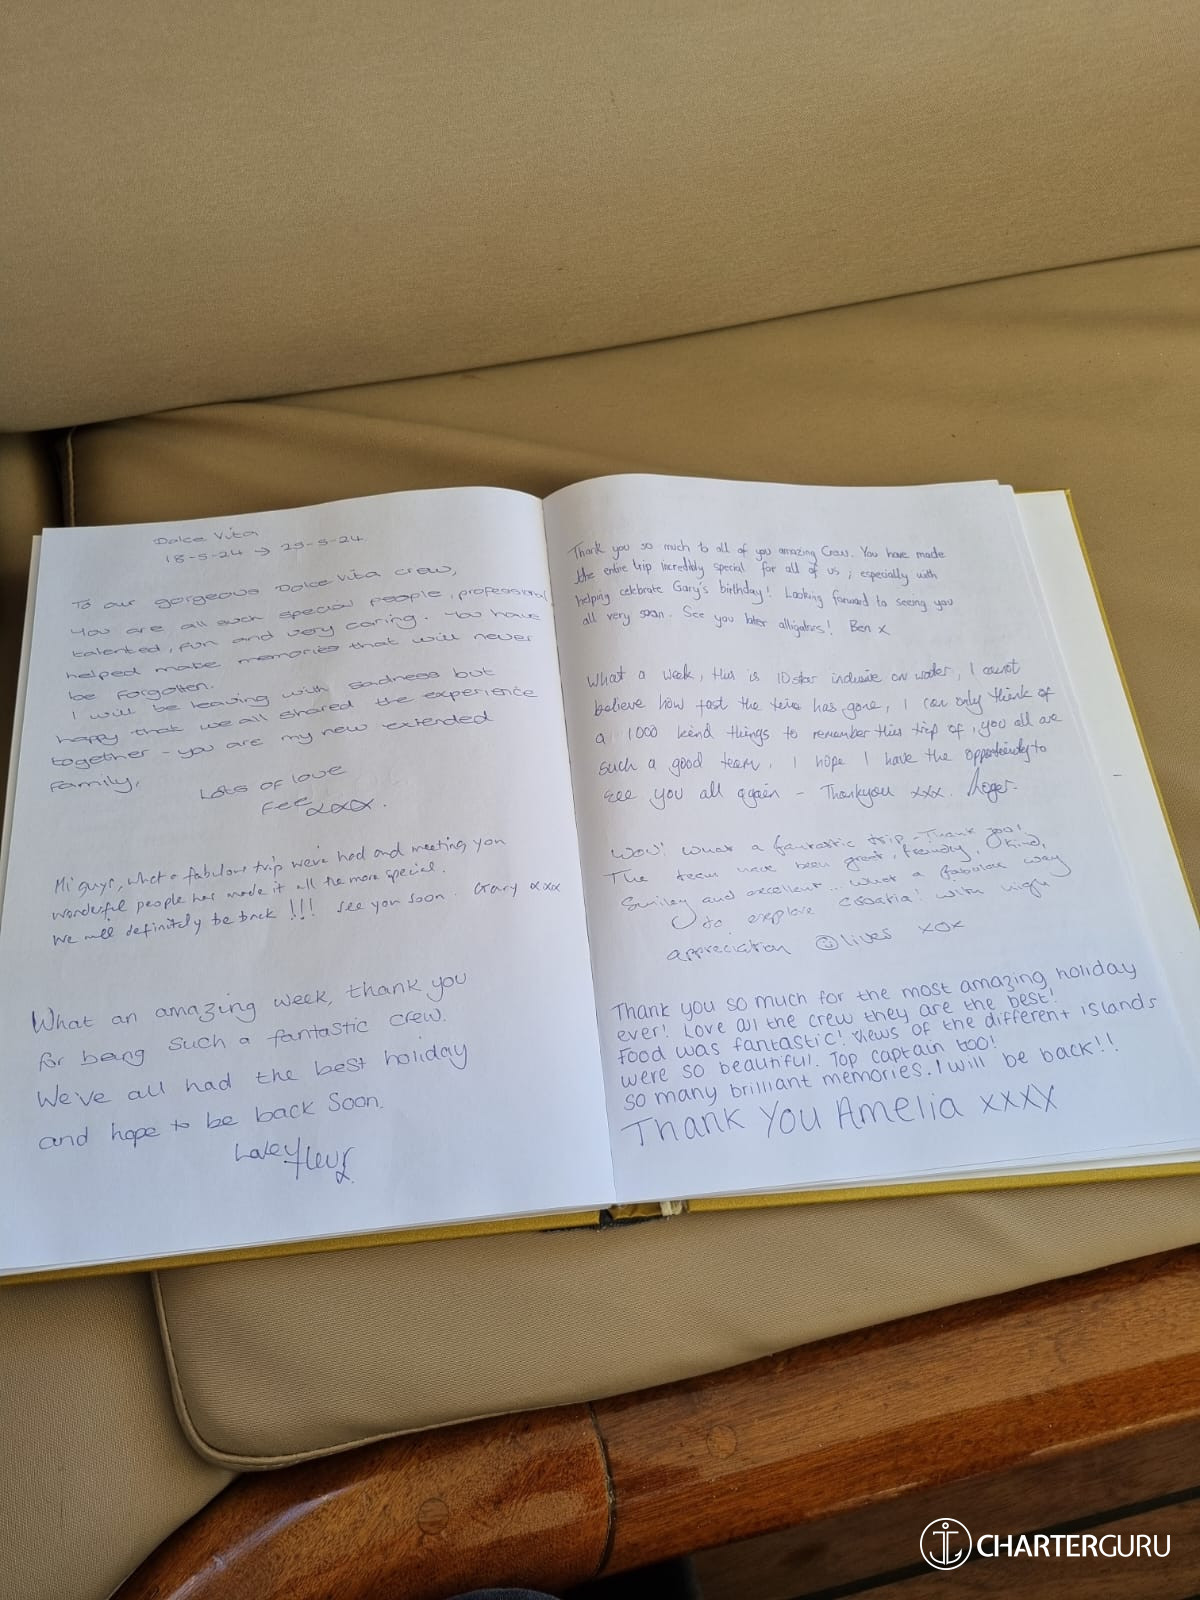 Dolce Vita
18-5-24 → 25-5-24
To our gorgeous Dolce Vita crew,
You are all such special people, professional
talented, fun and very caring. You have
helped make memories that will never
be forgotten.
I will be leaving with sadness but
happy that we all shared the experience
together - you are my new extended
family,
Lots of love
Fee xxx.
Hi guys, what a fabulous trip we've had and meeting you
wonderful people has made it all the more special.
We will definitely be back !!! see you soon. Gary xxx
What an amazing week, thank you
for being such a fantastic crew.
We've all had the best holiday
and hope to be back soon.
Love Fleur
x
Thank you so much to all of you amazing Crew. You have made
the entire trip incredibly special for all of us, especially with
helping celebrate Gary's birthday! Looking forward to seeing you
all very soon. See you later alligators! Ben x
What a week, this is 10 star on water, I cannot
believe how fast the time has gone, I can only think of
a 1000 kind things to remember this trip of, you all are
such a good team. I hope I have the opportunity to
see you all again - Thankyou xxx. Roger.
Wow! What a fantastic trip - Thank you!
The team have been great, friendly, kind,
Smiley and excellent... What a fabulous way
to explore Croatia! With high
appreciation xox
Thank you so much for the most amazing holiday
ever! Love all the crew they are the best!
Food was fantastic! Views of the different islands
were so beautiful. Top captain too!
So many brilliant memories. I will be back!!
Thank You Amelia xxxx
CHARTERGURU